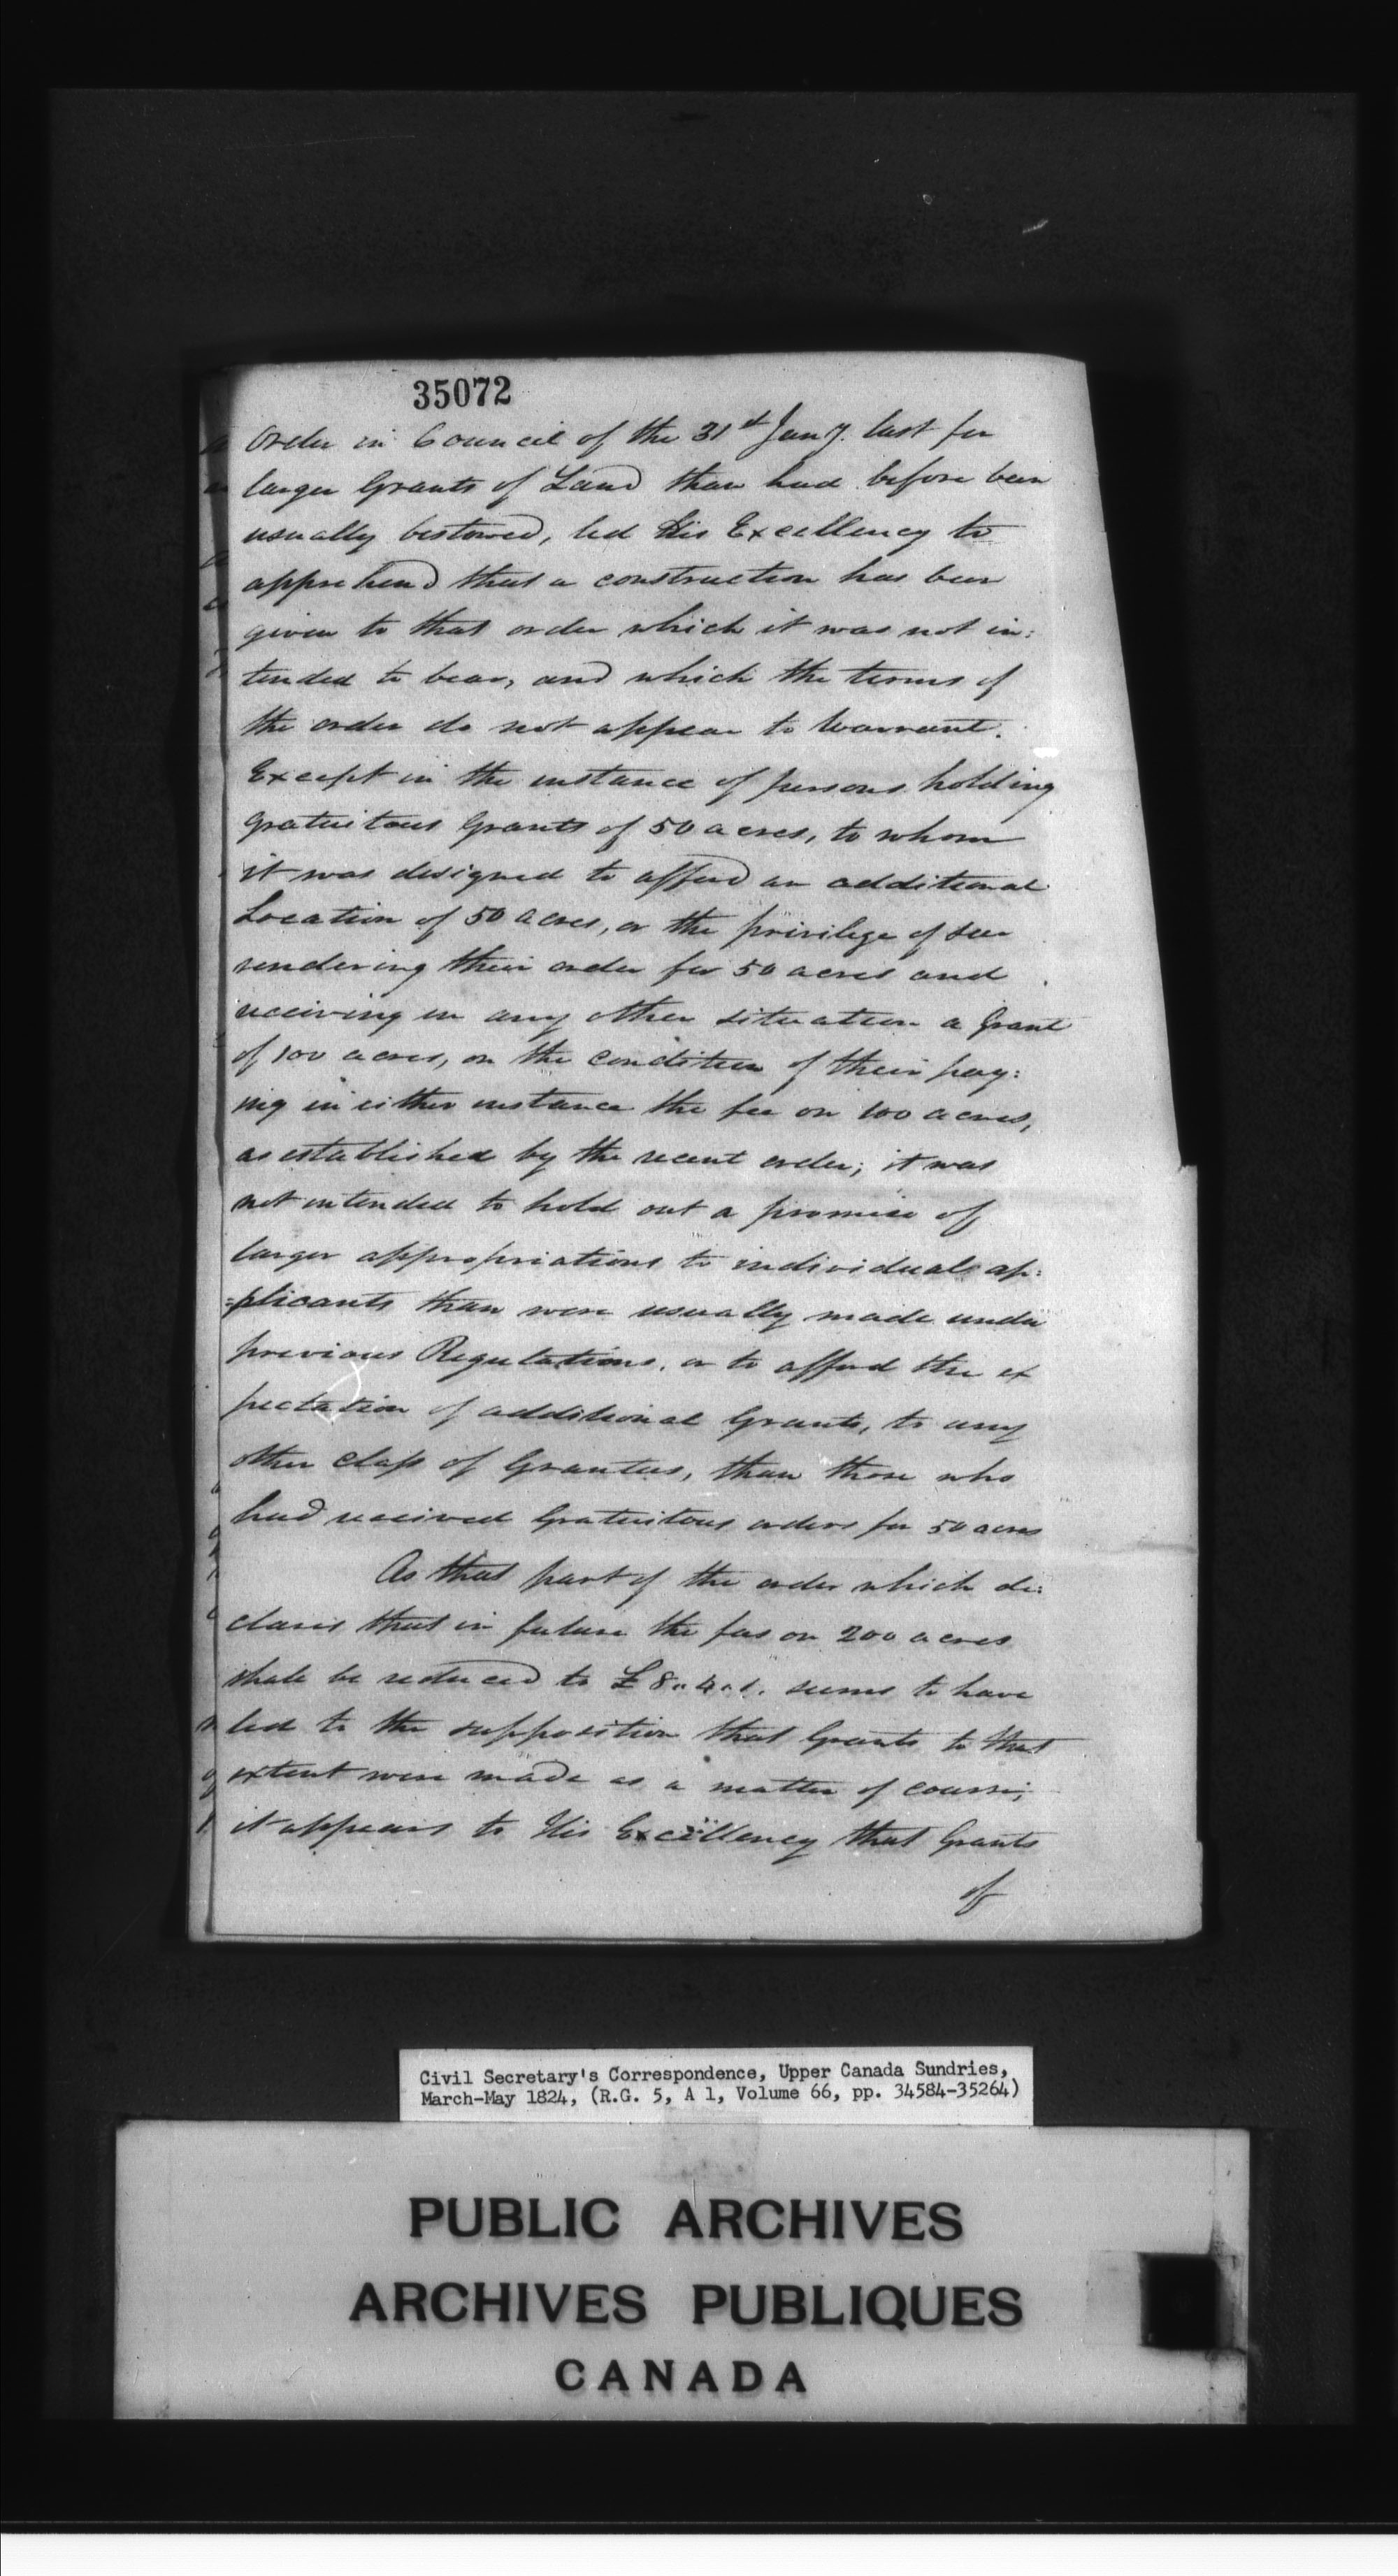 35072
Order in Council of the 31st Jany. last for
larger Grants of Land than had before been
usually bestowed, led His Excellency to
apprehend that a construction has been
given to that order which it was not in:
tended to bear, and which the terms of
the order do not appear to Warrant.
Except in the instance of persons holding
gratuitous Grants of 50 acres, to whom
it was designed to afford an additional
Location of 50 acres, or the privilege of sur
rendering their order for 50 acres and
receiving in any other situation a Grant
of 100 acres, on the condition of their pay:
ing in either instance the fee on 100 acres,
as established by the recent order; it was
not intended to hold out a promise of
larger appropriations to individuals ap:
:plicants than were usually made under
previous Regulations, or to afford the ex
pectation of additional Grants, to any
other class of Grantees, than those who
had received Gratuitous orders for 50 acres
As that part of the order which de:
clares that in future the fees on 200 acres
shall be reduced to £8..4..1. seems to have
led to the supposition that Grants to that
extent were made as a matter of course;
it appears to His Excellency that Grants
of
Civil Secretary's Correspondence, Upper Canada Sundries,
March-May 1824, (R.G. 5, A 1, Volume 66, pp. 34584-35264)
PUBLIC ARCHIVES
ARCHIVES PUBLIQUES
CANADA